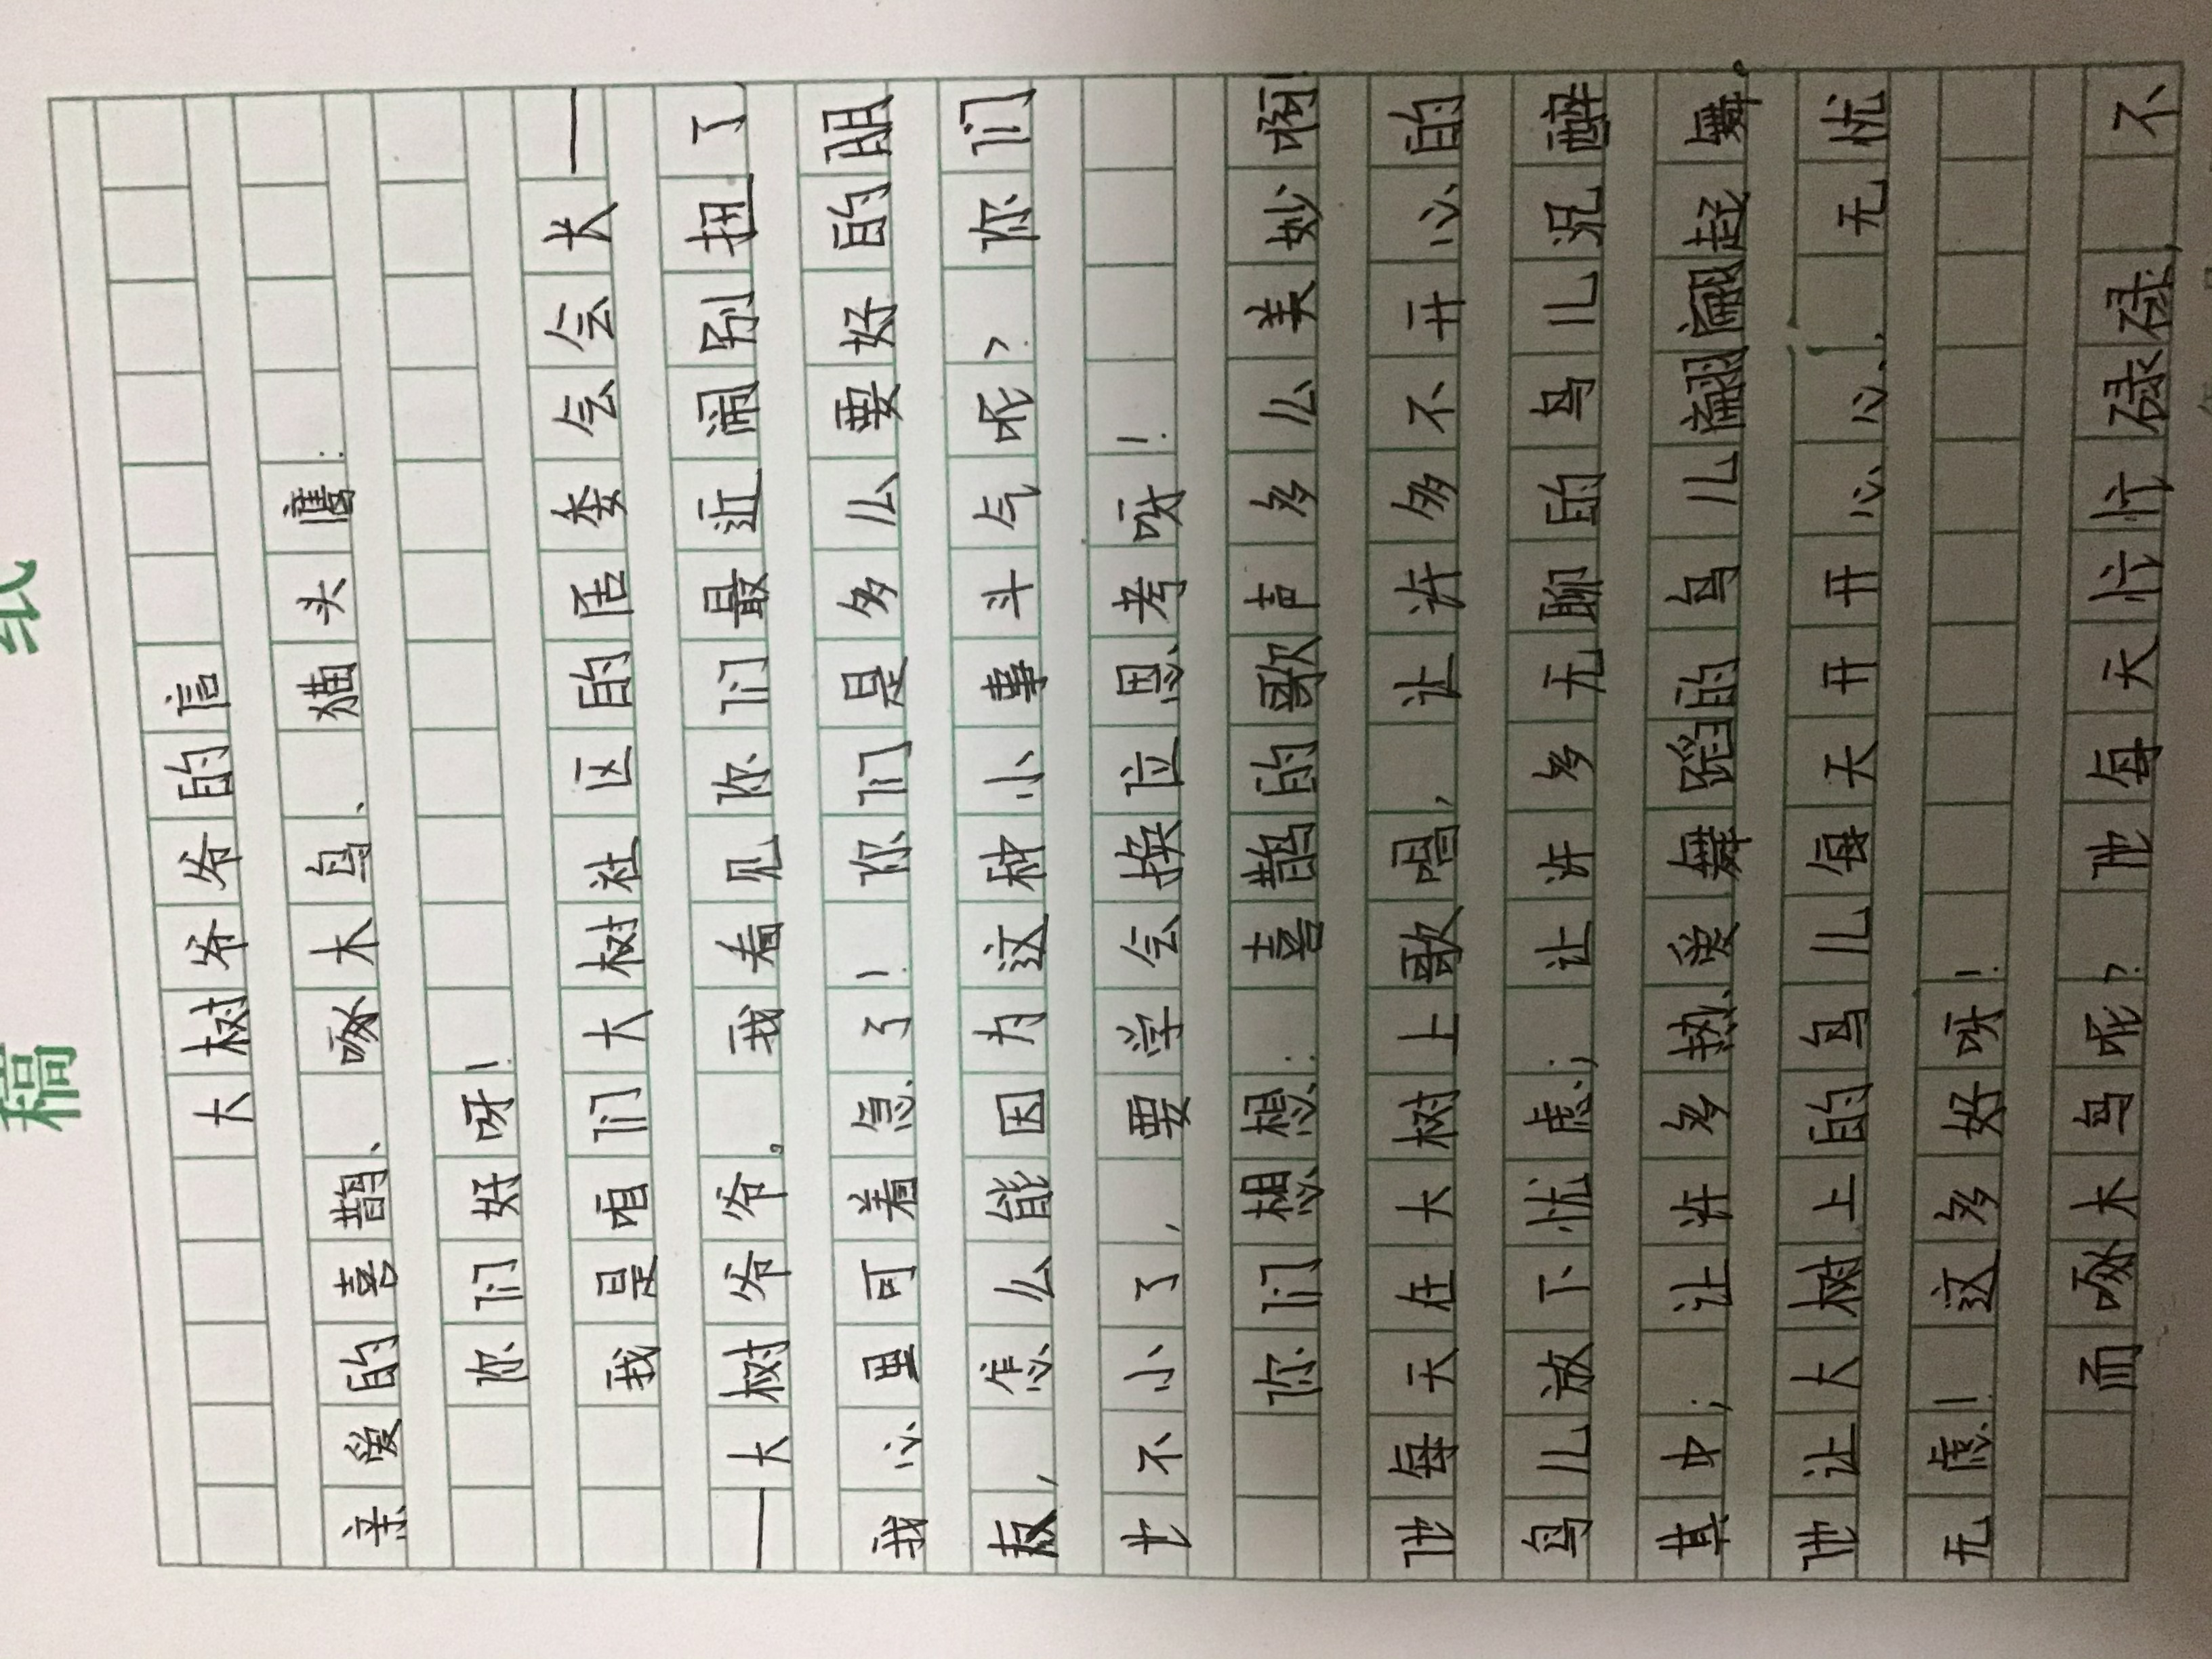 稿 纸
大树爷爷的信
亲爱的喜鹊、啄木鸟、猫头鹰:
你们好呀!
我是咱们大树社区的居委会会长—
—大树爷爷。我看见你们最近闹别扭了,
我心里可着急了!你们是多么要好的朋
友,怎么能因为这种小事斗气呢?你们
也不小了,要学会换位思考呀!
你们想想:喜鹊的歌声多么美妙啊!
他每天在大树上歌唱,让许多不开心的
鸟儿放下忧虑;让许多无聊的鸟儿沉醉
其中;让许多热爱舞蹈的鸟儿翩翩起舞。
他让大树上的鸟儿每天开开心心,无忧
无虑!这多好呀!
而啄木鸟呢?他每天忙忙碌碌,不